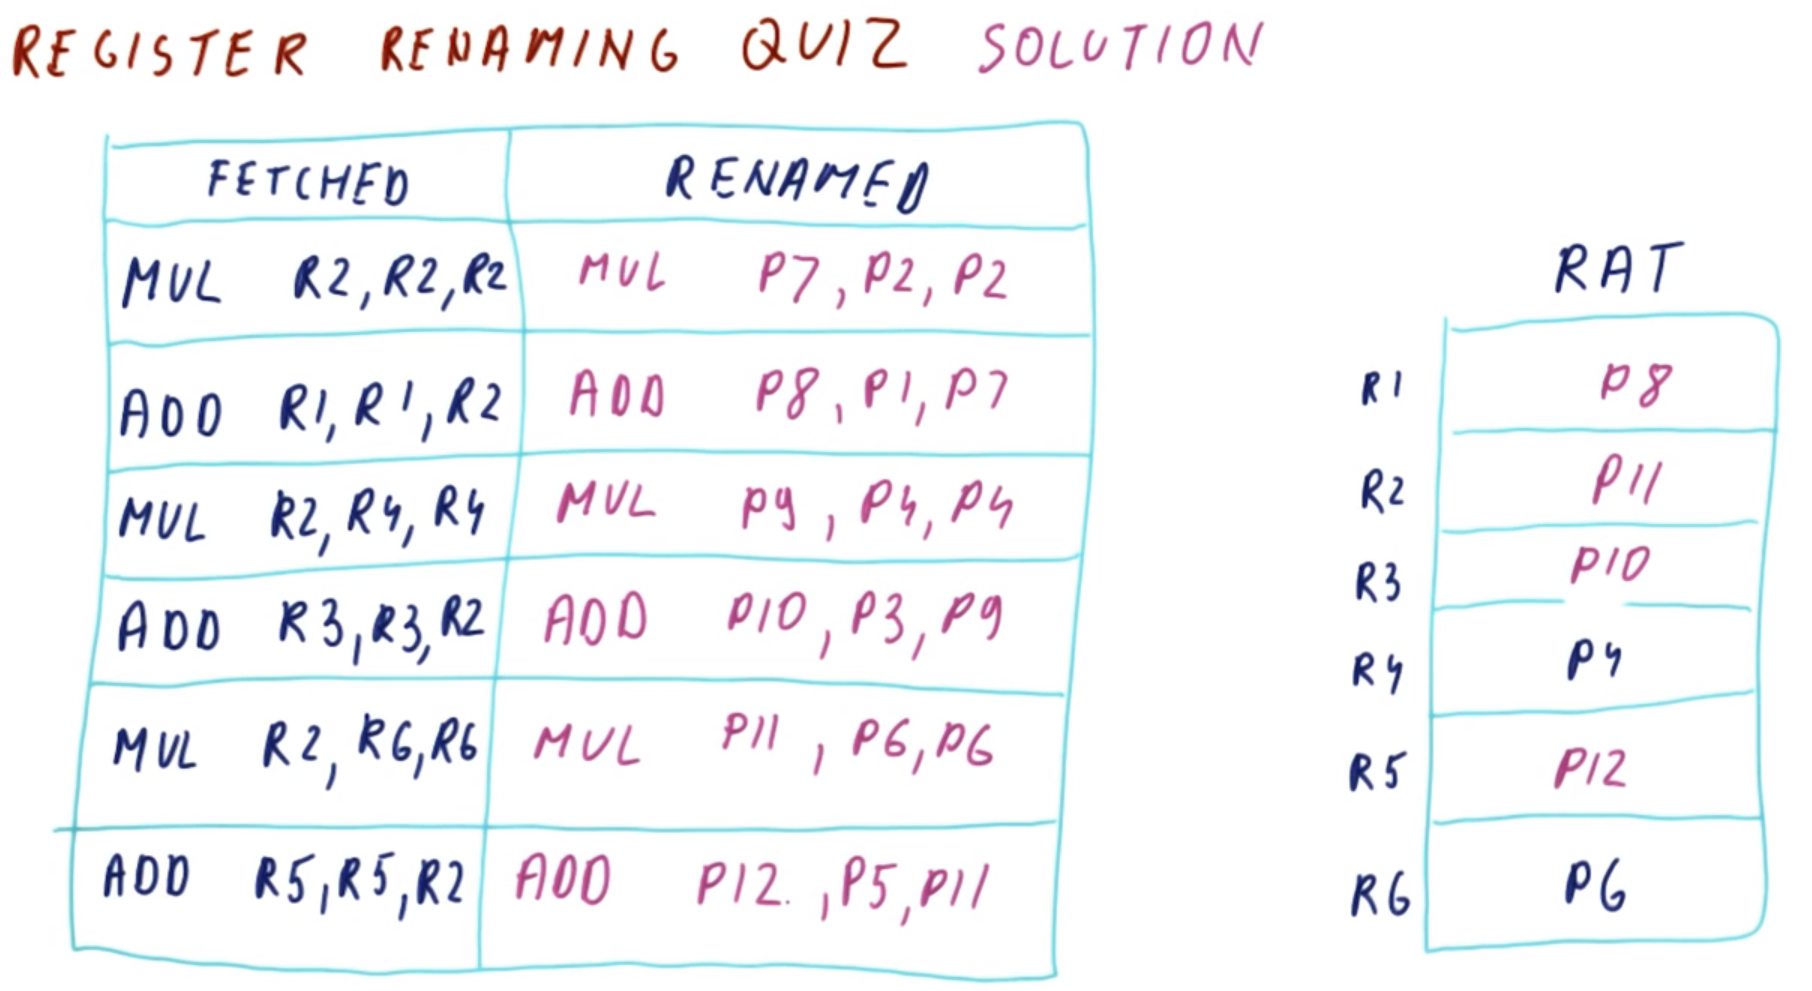 REGISTER RENAMING QUIZ SOLUTION
FETCHED RENAMED
MUL R2,R2,R2 MUL P7,P2,P2
ADD R1,R1,R2 ADD P8,P1,P7
MUL R2,R4,R4 MUL P9,P4,P4
ADD R3,R3,R2 ADD P10,P3,P9
MUL R2,R6,R6 MUL P11,P6,P6
ADD R5,R5,R2 ADD P12.,P5,P11
RAT
R1 P8
R2 P11
R3 P10
R4 P4
R5 P12
R6 P6